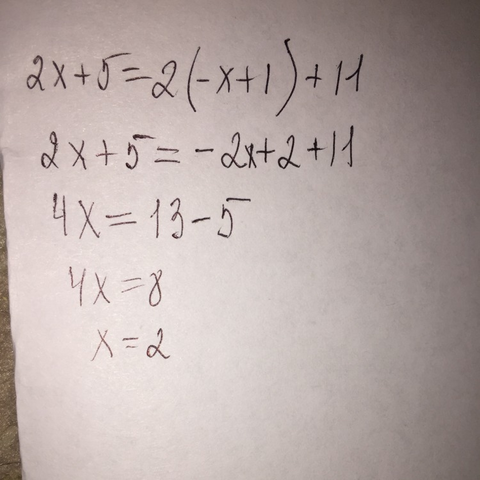 2x+5=2(-x+1)+11
2x+5=-2x+2+11
4x=13-5
4x=8
x=2